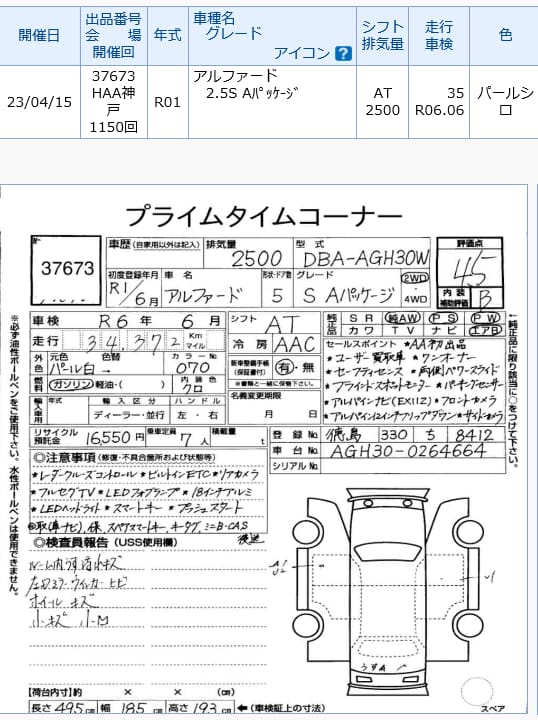 開催日 出品番号 会場 開催回 年式 車種名 グレード アイコン ? シフト 排気量 走行 車検 色
23/04/15 37673 HAA神戸 1150回 R01 アルファード 2.5S Aパッケージ AT 2500 35 R06.06 パールシロ
プライムタイムコーナー
No 37673
車歴(自家用以外は記入) 排気量 2500 型式 DBA-AGH30W
評価点 4.5
内装補助評価 B
初度登録年月 R1/6月 車名 アルファード 形状・ドア数 5 グレード S Aパッケージ 2WD 4WD
車検 R6年 6月 シフト AT
純正品 SR 純AW PS PW カワ TV ナビ エアB
走行 34,372 Km マイル 冷房 AAC
外色 元色 パール白→ 色替 カラーNo 070
新車整備手帳(保証書付) 有・無
※書類と一緒に保管下さい。
燃料 ガソリン・軽油・( ) 内装色 クロ
名義変更期限 月 日
輸入車用 年式 モデル ディーラー・並行 ハンドル 左・右
セールスポイント ★AA初出品
★ユーザー買取車 ★ワンオーナー
★セーフティセンス ★両側パワースライド
★ブラインドスポットモニター ★パーキングセンサー
★アルパインナビ(EX11Z) ★フロントカメラ
★アルパイン12インチフリップダウン ★サイドカメラ
リサイクル預託金 16550円 乗車定員 7人 積載量 t
登録No. 徳島 330 ち 8412
車台No. AGH30-0264664
シリアルNo.
◎注意事項(修復・不具合箇所および状態等)
★レーダークルーズコントロール ★ビルトインETC ★リアカメラ
★フルセグTV ★LEDフォグランプ ★18インチアルミ
★LEDヘッドライト ★スマートキー ★プッシュスタート
取(車ナビ)、保、スペアスマートキー、キータグ、ミニB-CAS
後送
◎検査員報告(USS使用欄)
ルーム内 キズ
左ドアミラーウィンカーヒビ
ホイールキズ
小キズ 小凹
【荷台内寸】約 × × (cm)
長さ 495cm 幅 185cm 高さ 193cm ←(車検証上の寸法)
スペア
※必ず油性ボールペンをご使用下さい。水性ボールペンは使用できません。
←純正品に限り該当に○をつけて下さい。